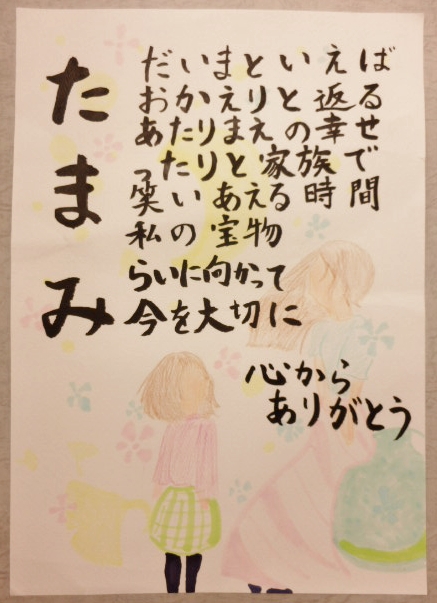 ただいまといえば
おかえりと返る
あたりまえの幸せ
まったりと家族で
笑いあえる時間
私の宝物
みらいに向かって
今を大切に
心から
ありがとう